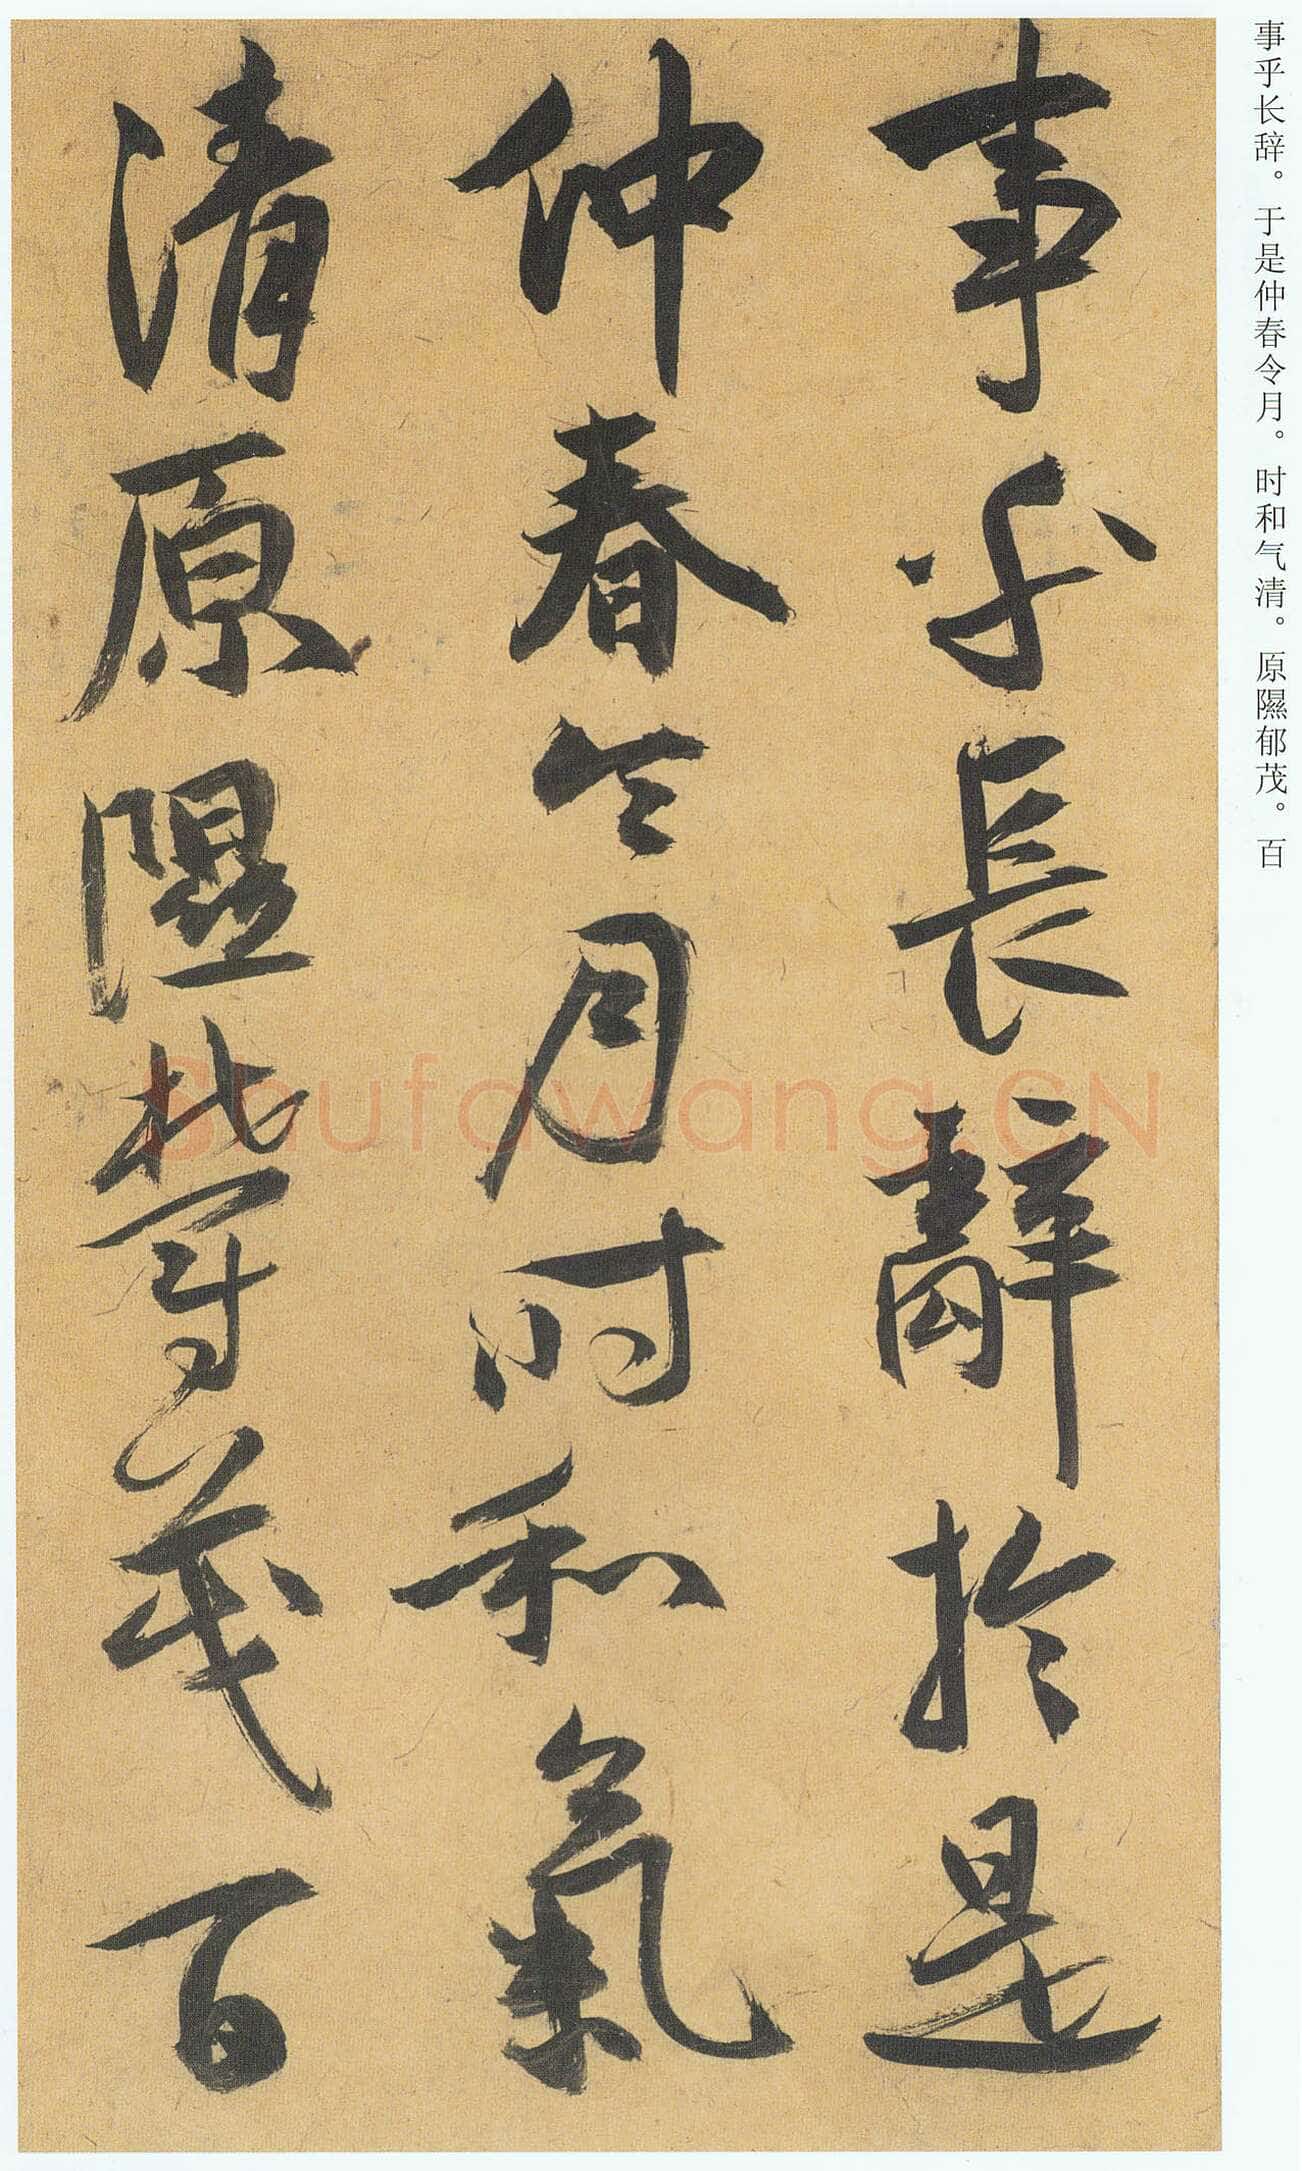 事乎长辞。于是仲春令月。时和气清。原隰郁茂。百
事乎長辭於是
仲春令月時和氣
清原隰欝茂百
Shufawang.CN